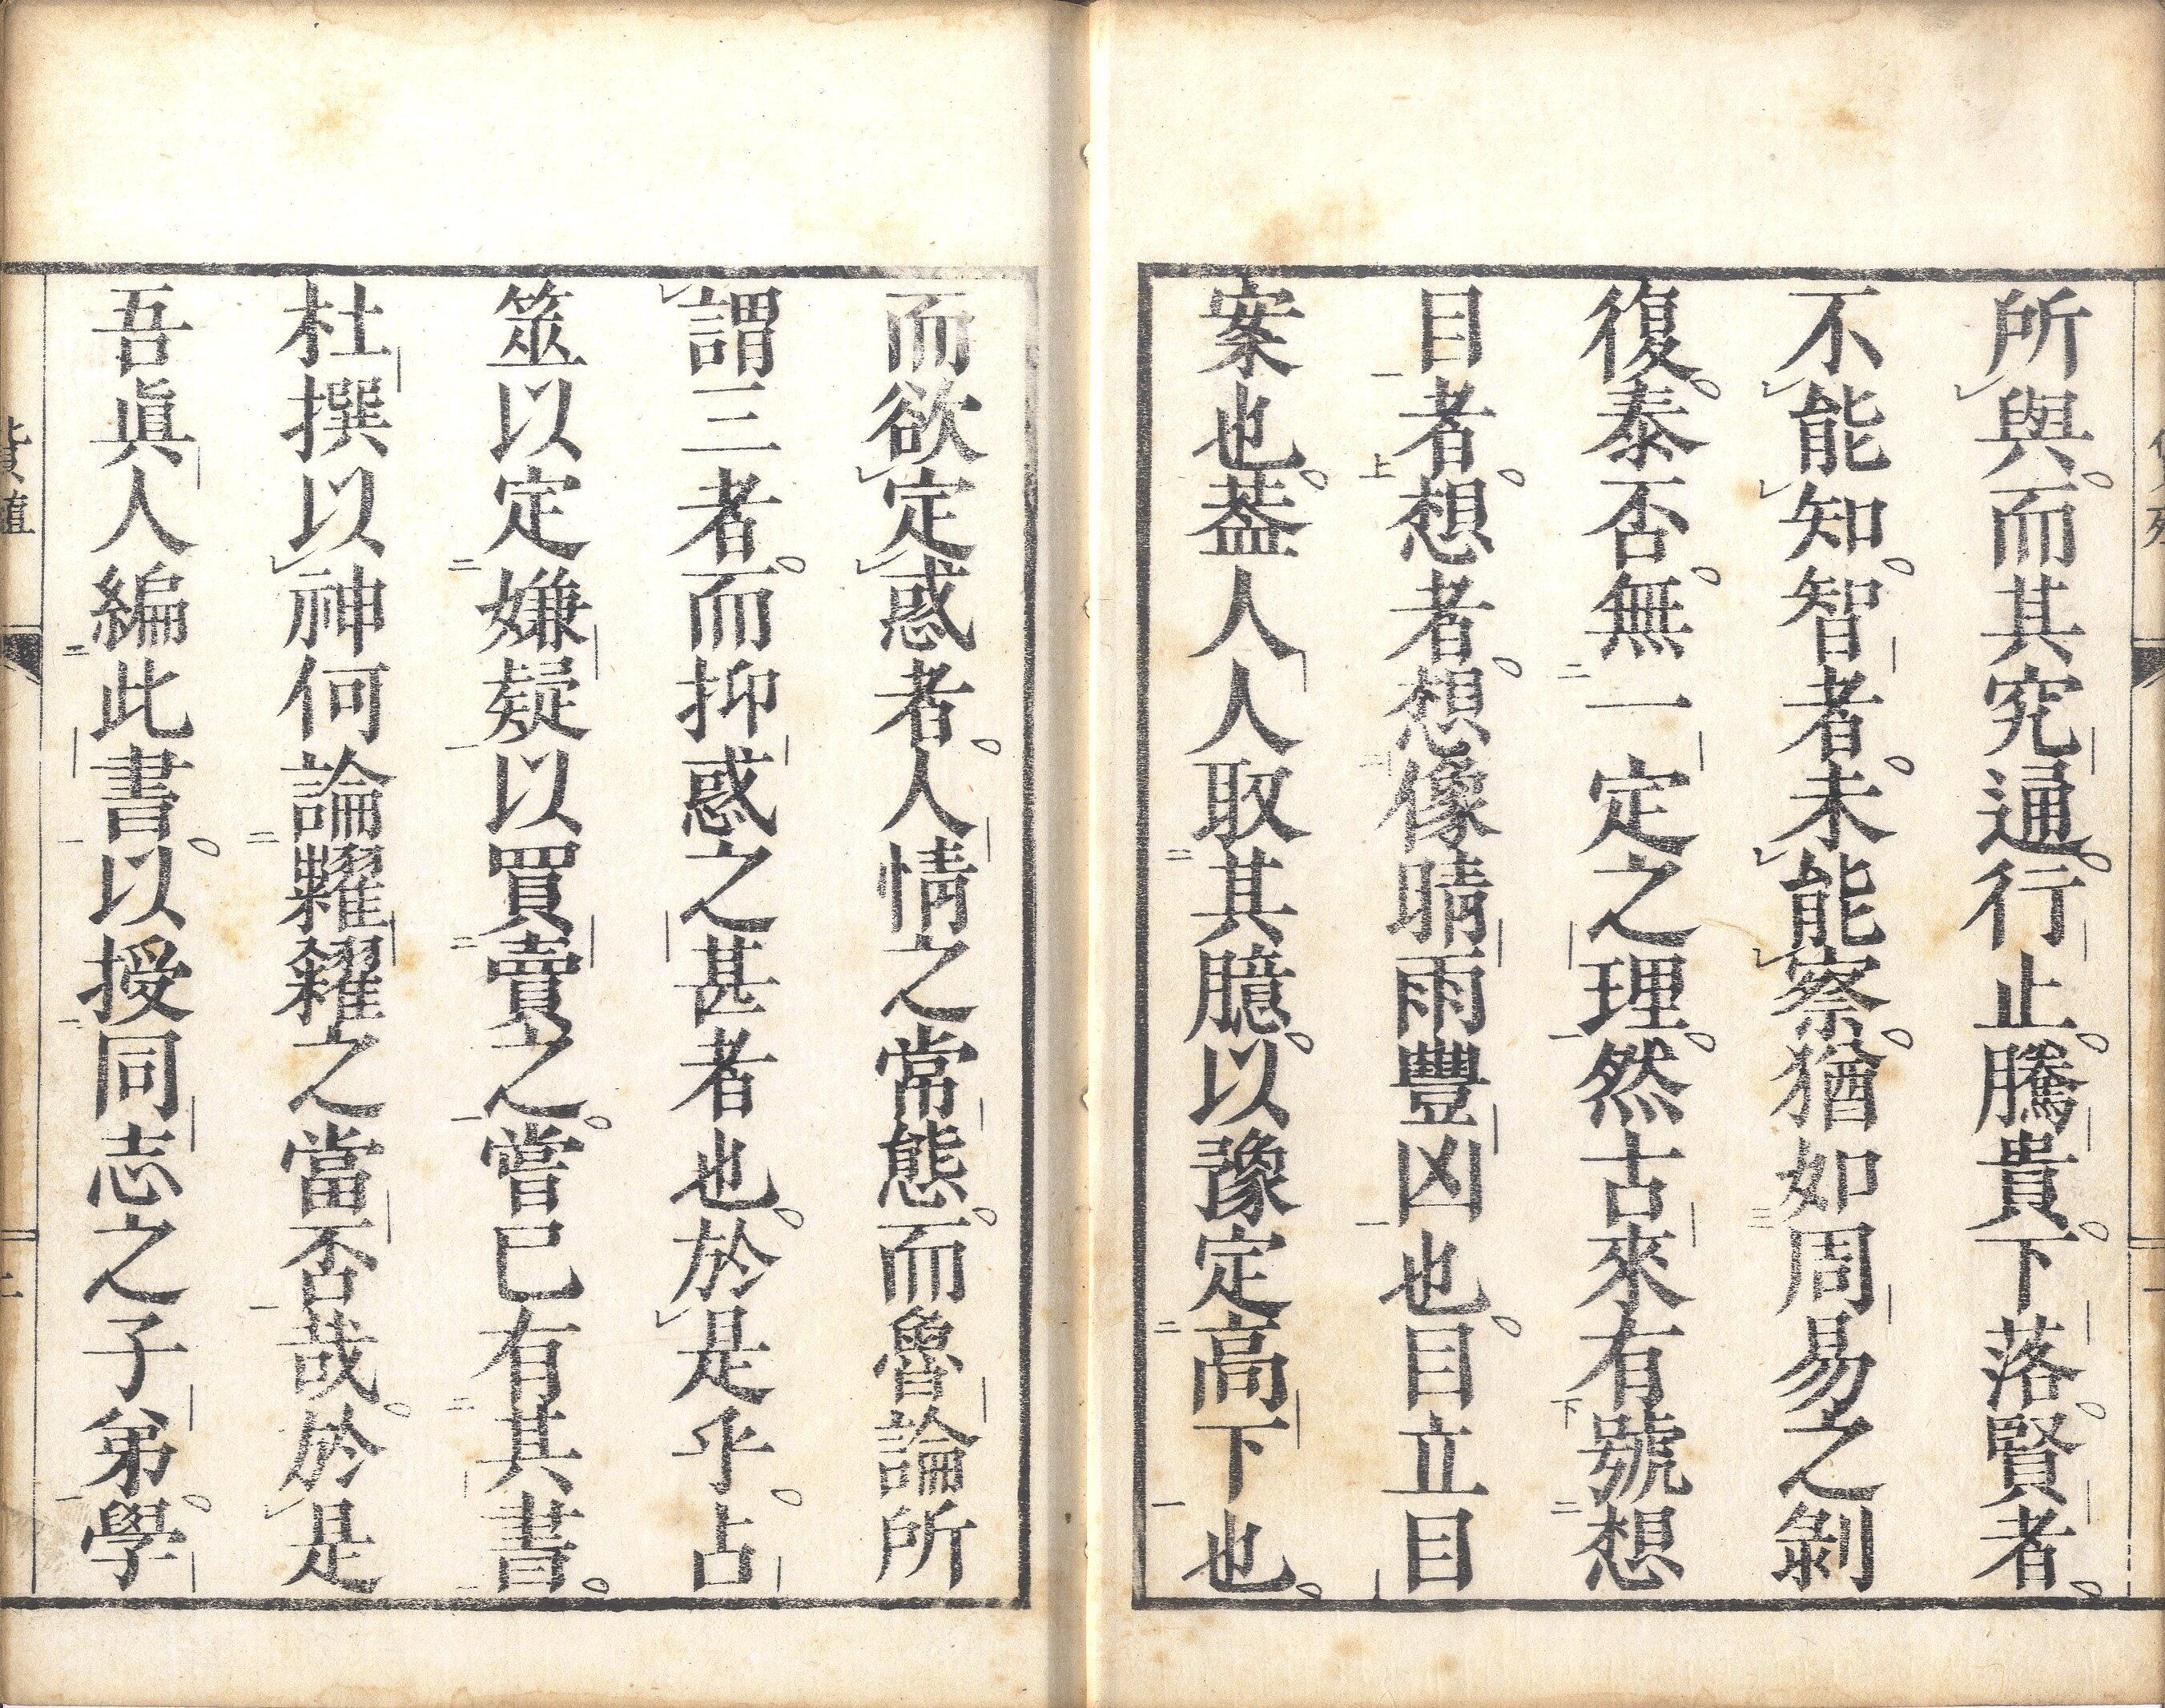 所與而其究通行止騰貴下落賢者
不能知智者未能察猶如周易之剝
復泰否無一定之理然古來有號想
目者想者想像晴雨豐凶也目立目
案也葢人人取其臆以豫定高下也
而欲定惑者人情之常態而魯論所
謂三者而抑惑之甚者也於是乎占
筮以定嫌疑以買賣之嘗已有其書
杜撰以神何論糶糴之當否哉於是
吾眞人編此書以授同志之子弟學